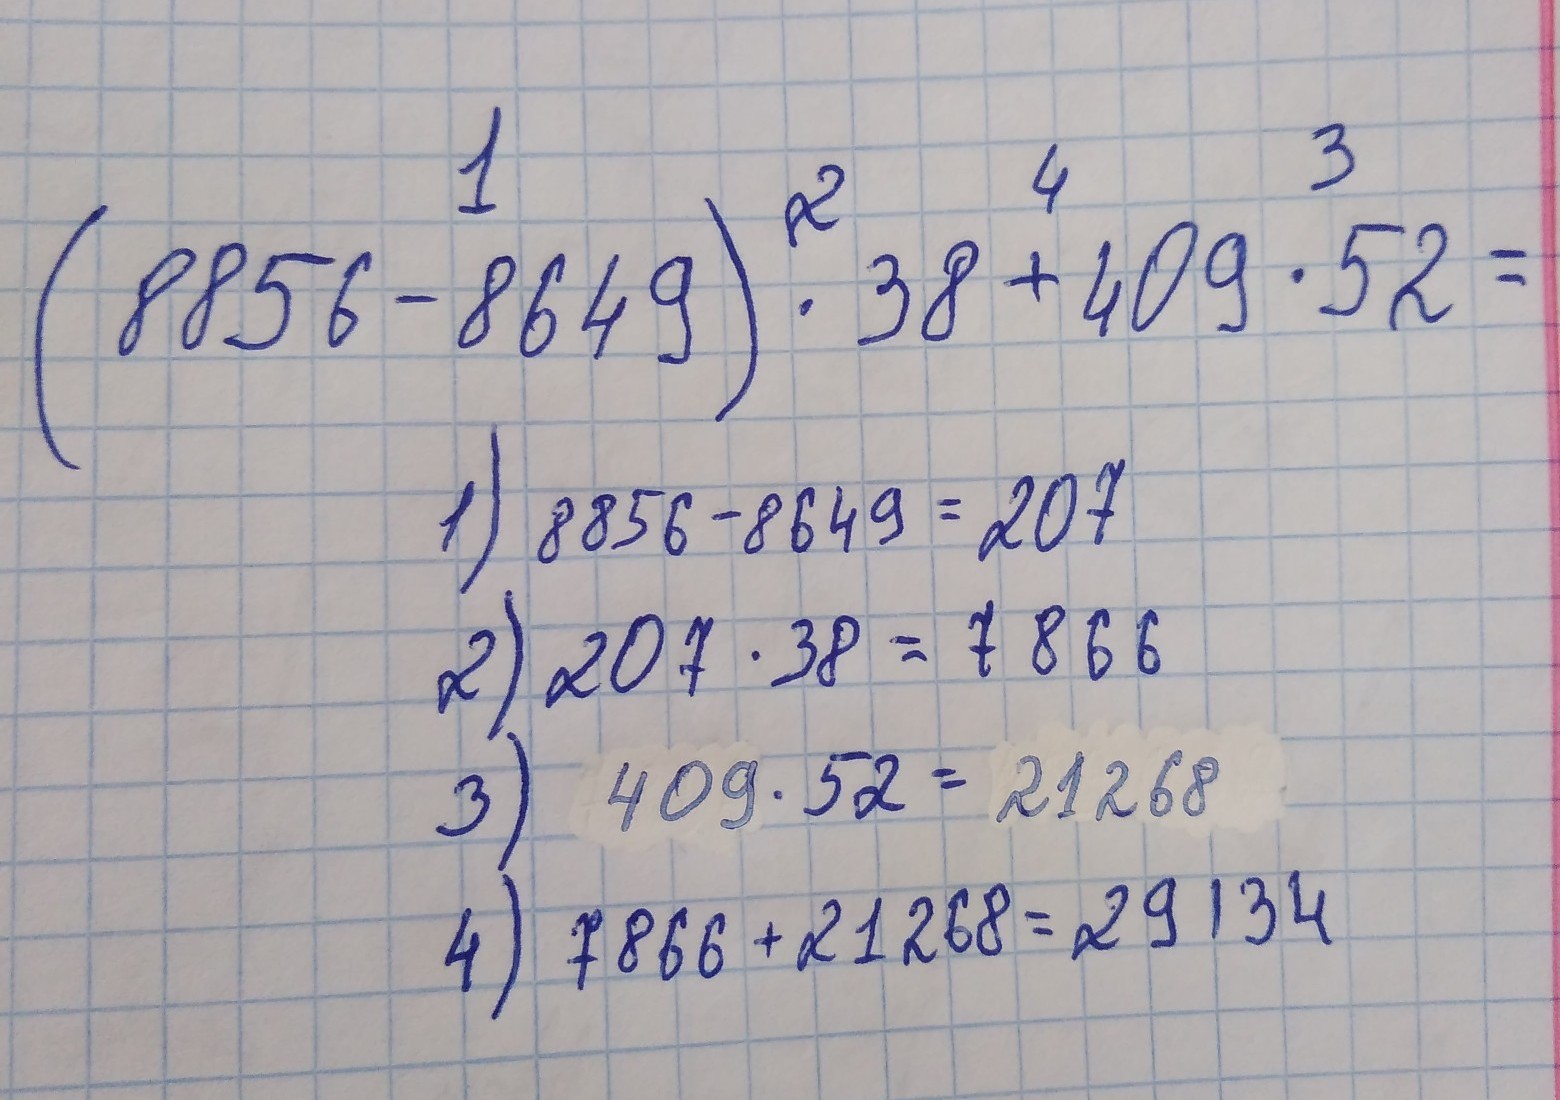 1 2 4 3
(8856-8649)·38+409·52=
1) 8856-8649=207
2) 207·38=7866
3) 409·52=21268
4) 7866+21268=29134